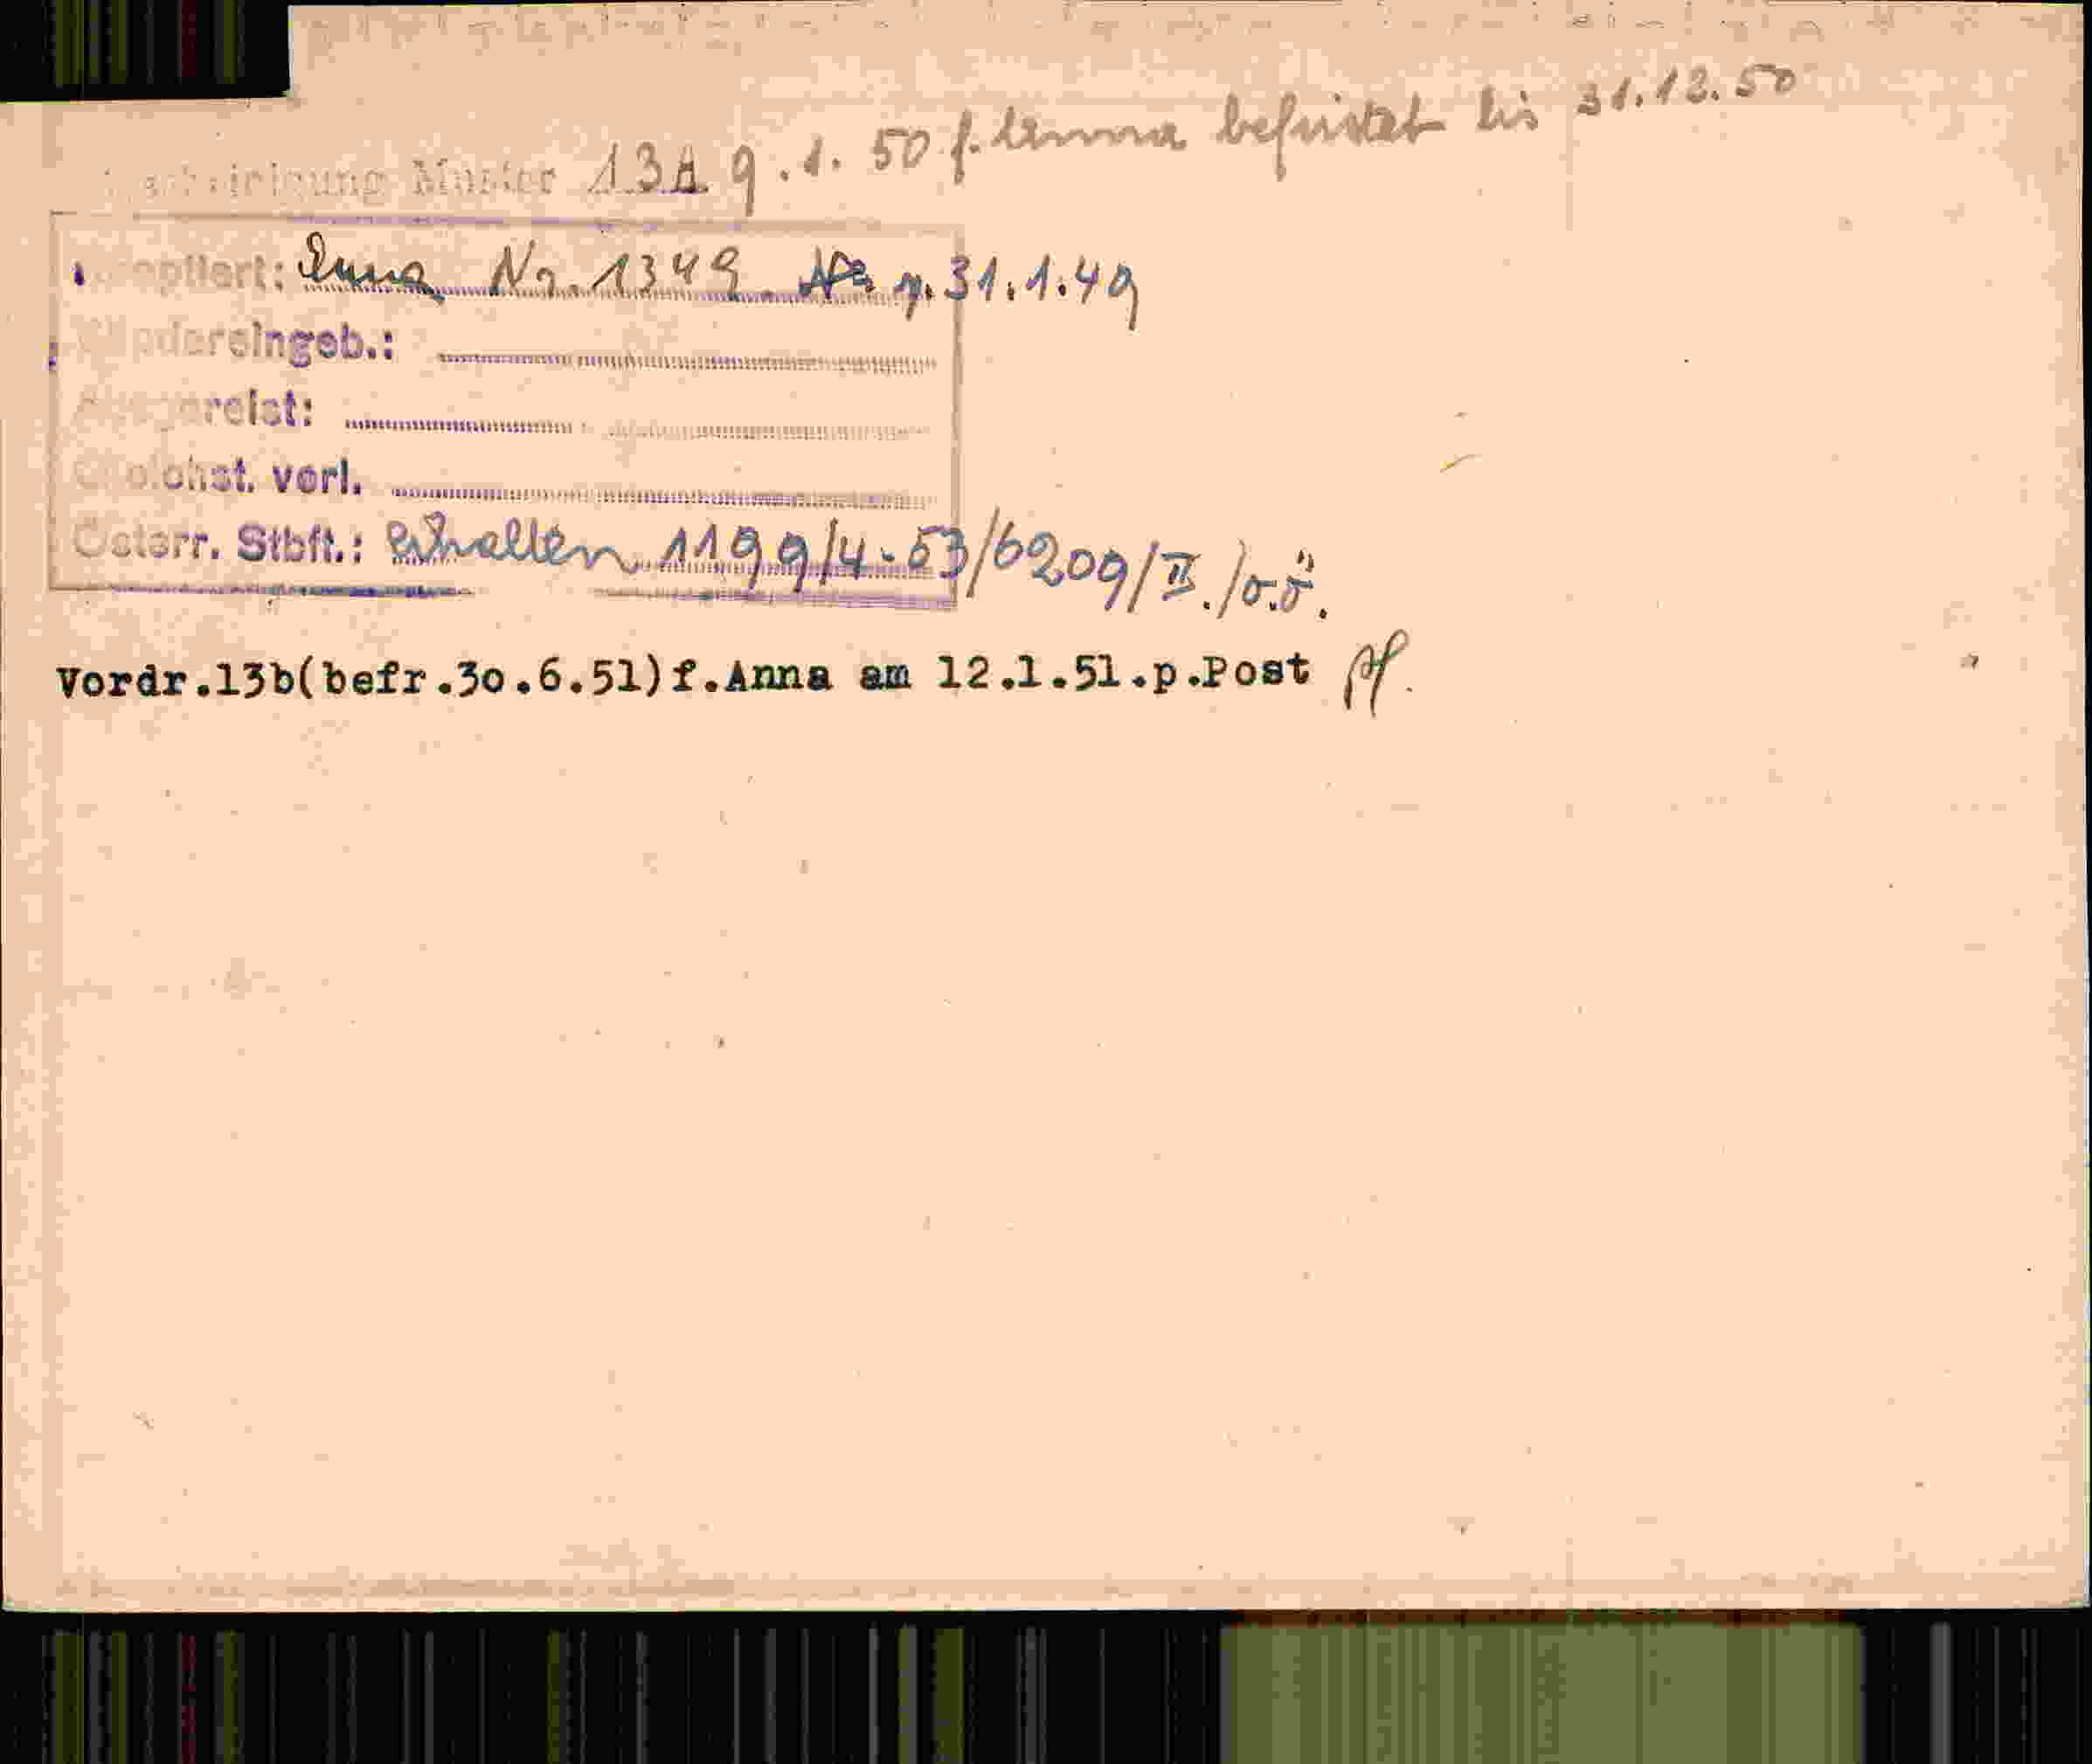 Bescheinigung Muster 13A 9.1.50 f. Anna befristet bis 31.12.50
Optiert: Anna Nr. 1349 v. 31.1.49
Wiedereingeb.:
Ausgereist:
Gleichst. verl.
Österr. Stbft.: erhalten 1199/4-53/6209/II./o.ö.
Vordr.13b(befr.3o.6.51)f.Anna am 12.1.51.p.Post